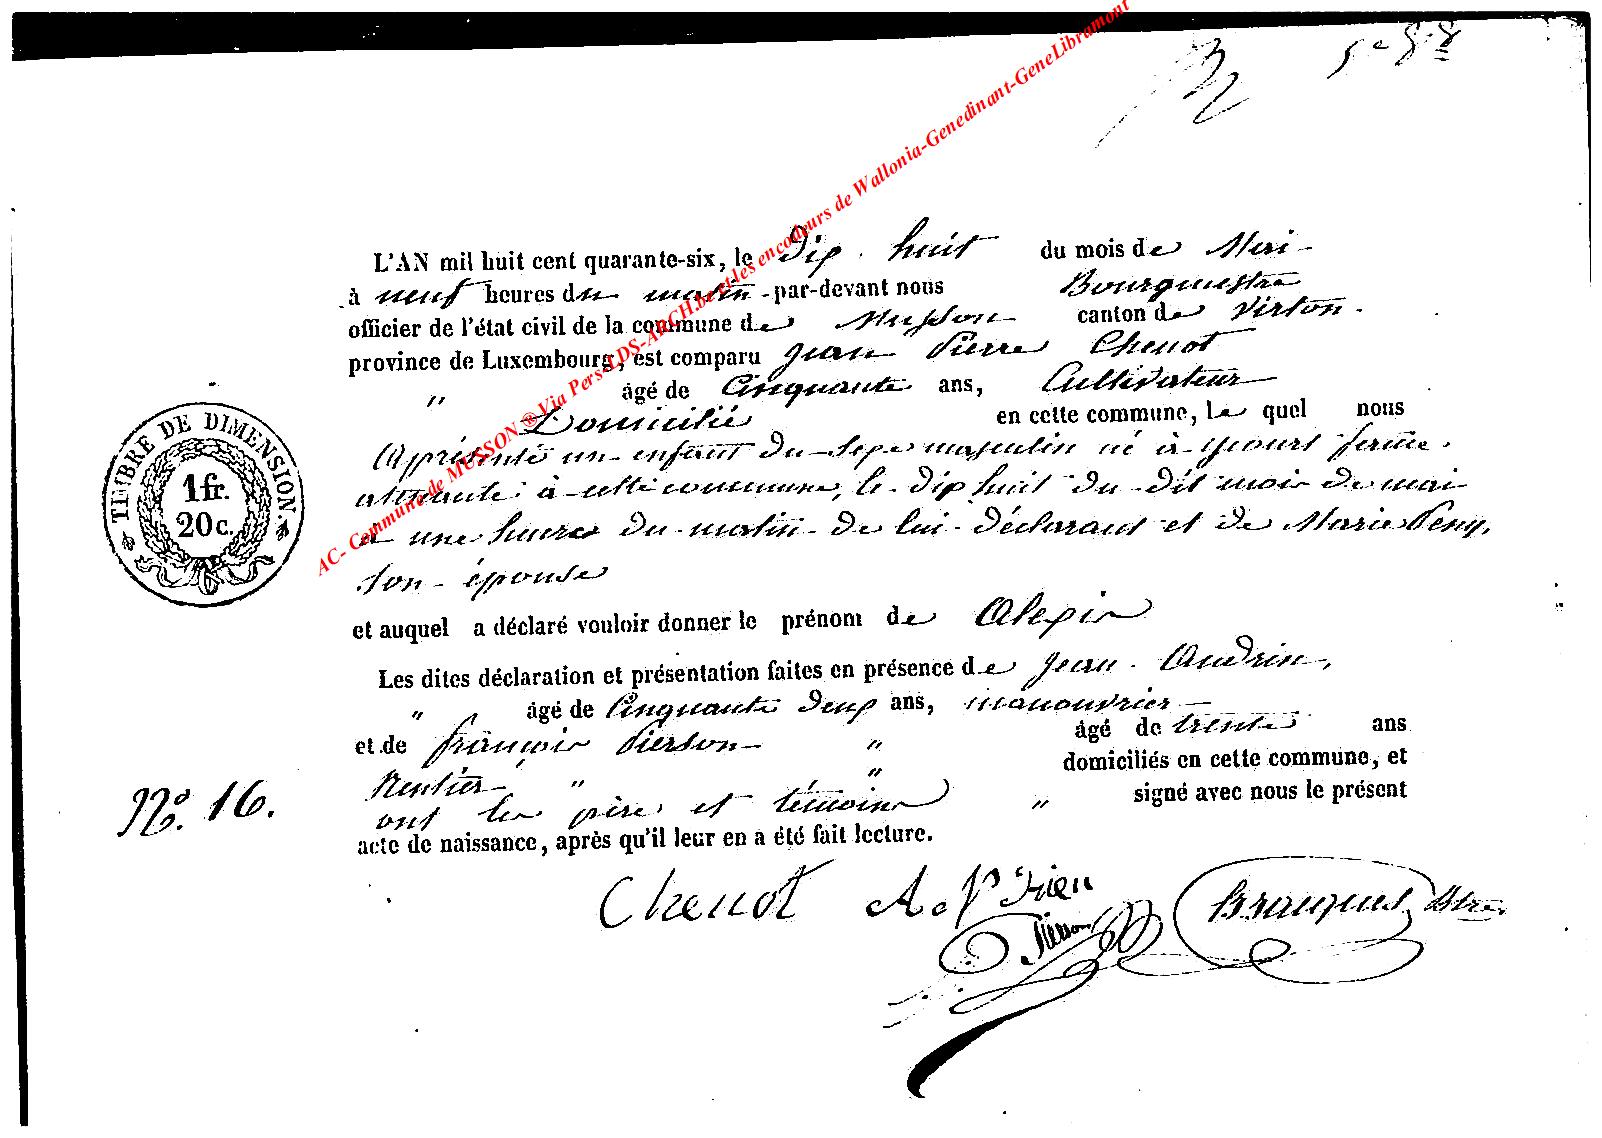 L'AN mil huit cent quarante-six, le Dix huit du mois de Mai
à neuf heures du matin par-devant nous Bourgmestre
officier de l'état civil de la commune de Musson canton de Virton.
province de Luxembourg, est comparu Jean Pierre Chenot
" âgé de Cinquante ans, Cultivateur
Domicilié en cette commune, le quel nous
A présenté un enfant du sexe masculin né à ferme
attenante à cette commune, le dix huit du dit mois de mai
à une heure du matin de lui déclarant et de Marie
son épouse
et auquel a déclaré vouloir donner le prénom de Alexis
Les dites déclaration et présentation faites en présence de Jean Andrin,
" âgé de Cinquante deux ans, manouvrier
et de françois Pierson " âgé de trente ans
Rentier " " domiciliés en cette commune, et
ont les père et témoins " signé avec nous le présent
acte de naissance, après qu'il leur en a été fait lecture.
TIMBRE DE DIMENSION.
1 fr.
20 c.
No. 16.
Chenot
Pierson
AC- Commune de MUSSON ® Via Pers-LDS-ARCH.be et les encodeurs de Wallonia-Genedinant-GeneLibramont